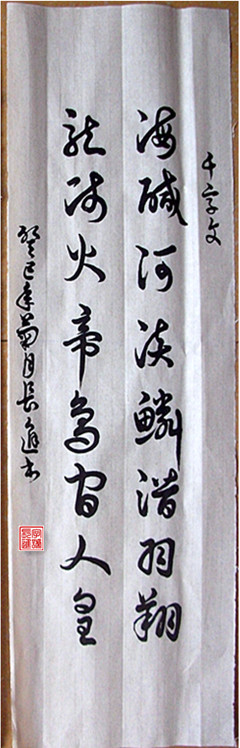 千字文
海醎河淡鱗潛羽翔
龍師火帝鳥官人皇
癸巳年菊月長進書